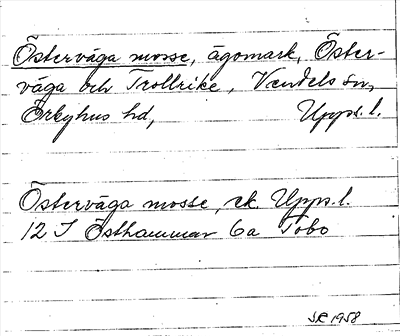 Östervåga mosse, ägomark, Öster-
våga och Trollrike, Vendels sn,
Örbyhus hd, Upps. l.
Östervåga mosse, ek. Upps. l.
12 I Östhammar 6a Tobo
SR 1958